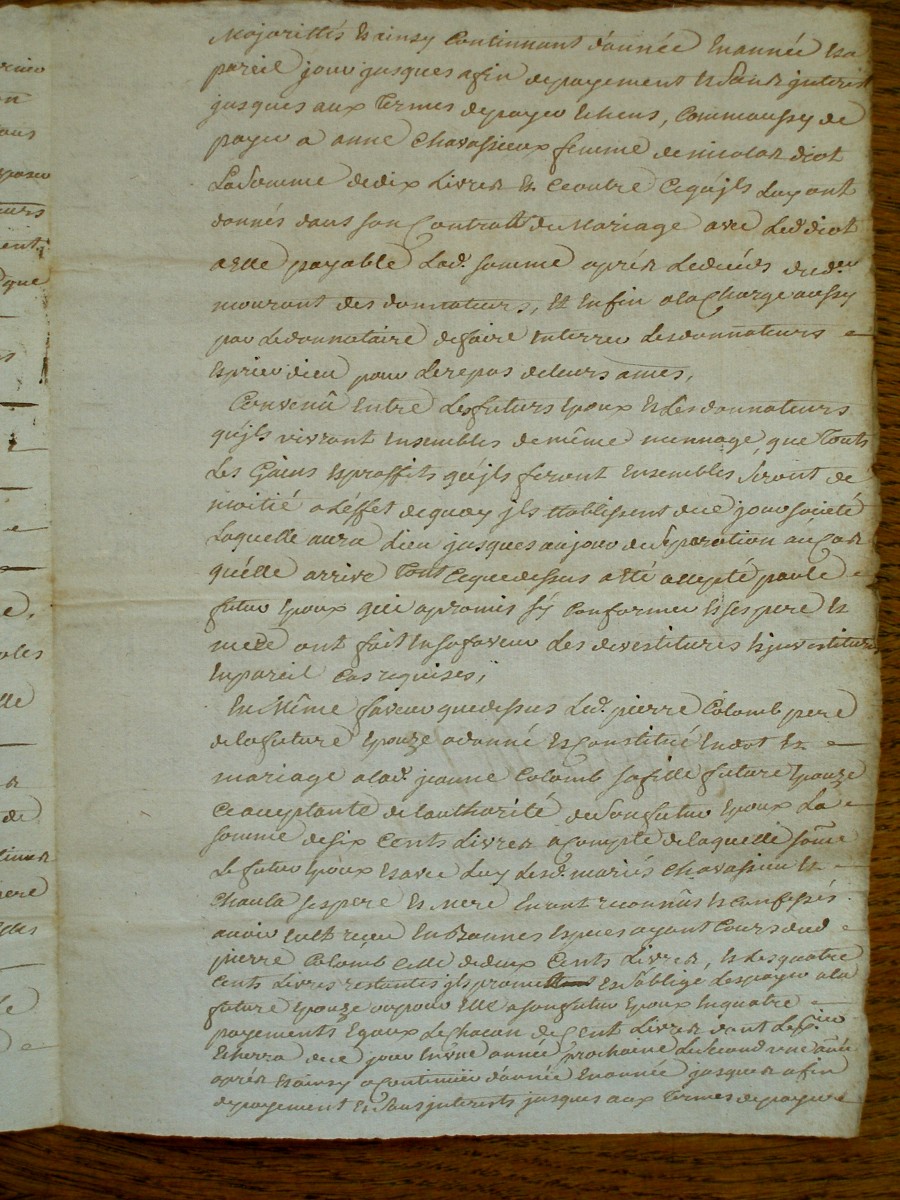 Majorittés Et ainsy Continuant d'année En année Et a
pareil jour jusques afin de payement Et Sans jnterest
jusques aux Termes de payer Echeus, Commaussy de
payer a anne Chavassieux femme de nicolas diot
La Somme de dix Livres Et Ce outre Ce qu'jls Luy ont
donnés dans son Contratt de Mariage avec Led. diot
a Elle payable Lad. somme après Le décès du der
mourant des donnateurs, Et Enfin a la Charge aussy
par Le donnataire de faire Enterrer Les donnateurs
Et prier dieu pour Le repos de leurs ames,
Convenû Entre Les futurs Epoux Et Les donnateurs
qu'jls vivront Ensembles de même mennage, que Touts
Les Gains Et proffits qu'jls feront Ensembles Seront de
moitié a L'éffet de quoy jls Etablissent de ce jour Société
Laquelle aura Lieu jusques au jour du Séparation au Cas
qu'élle arrive Tout Ce que dessus a Eté accepté par Le
futur Epoux qui a promis s'y Conformer Et ses pere Et
mere ont fait En sa faveur Les devestitures Et jnvestitures
En pareil Cas requises,
En Même faveur que dessus Led. pierre Colomb pere
de La future Epouze a donné Et Constitué En dot Et
mariage a lad. jeanne Colomb sa fille future Epouze
Ce acceptante de l'authorité du Son futur Epoux La
somme de Six Cents Livres a Compte de laquelle Some
Le futur Epoux Et avec Luy Lesd. mariés Chavassieux Et
Chaula ses pere Et Mere En ont reconnûs Et Confessés
avoir Eu Et reçeu En Bonnes Especes ayant Cours dud
pierre Colomb Celle de deux Cents Livres, Et Les quatre
Cents Livres restantes jl promet Et S'oblige Les payer a la
future Epouze ou pour Elle a son futur Epoux En quatre
payements Egaux de Chacun de Cent Livres dont Le p.ier
Echerra de ce jour En une année prochaine Le Second une année
après Et ainsy a Continuer d'année En année jusques a fin
de payement Et Sans jnterests jusques aux Termes de payer